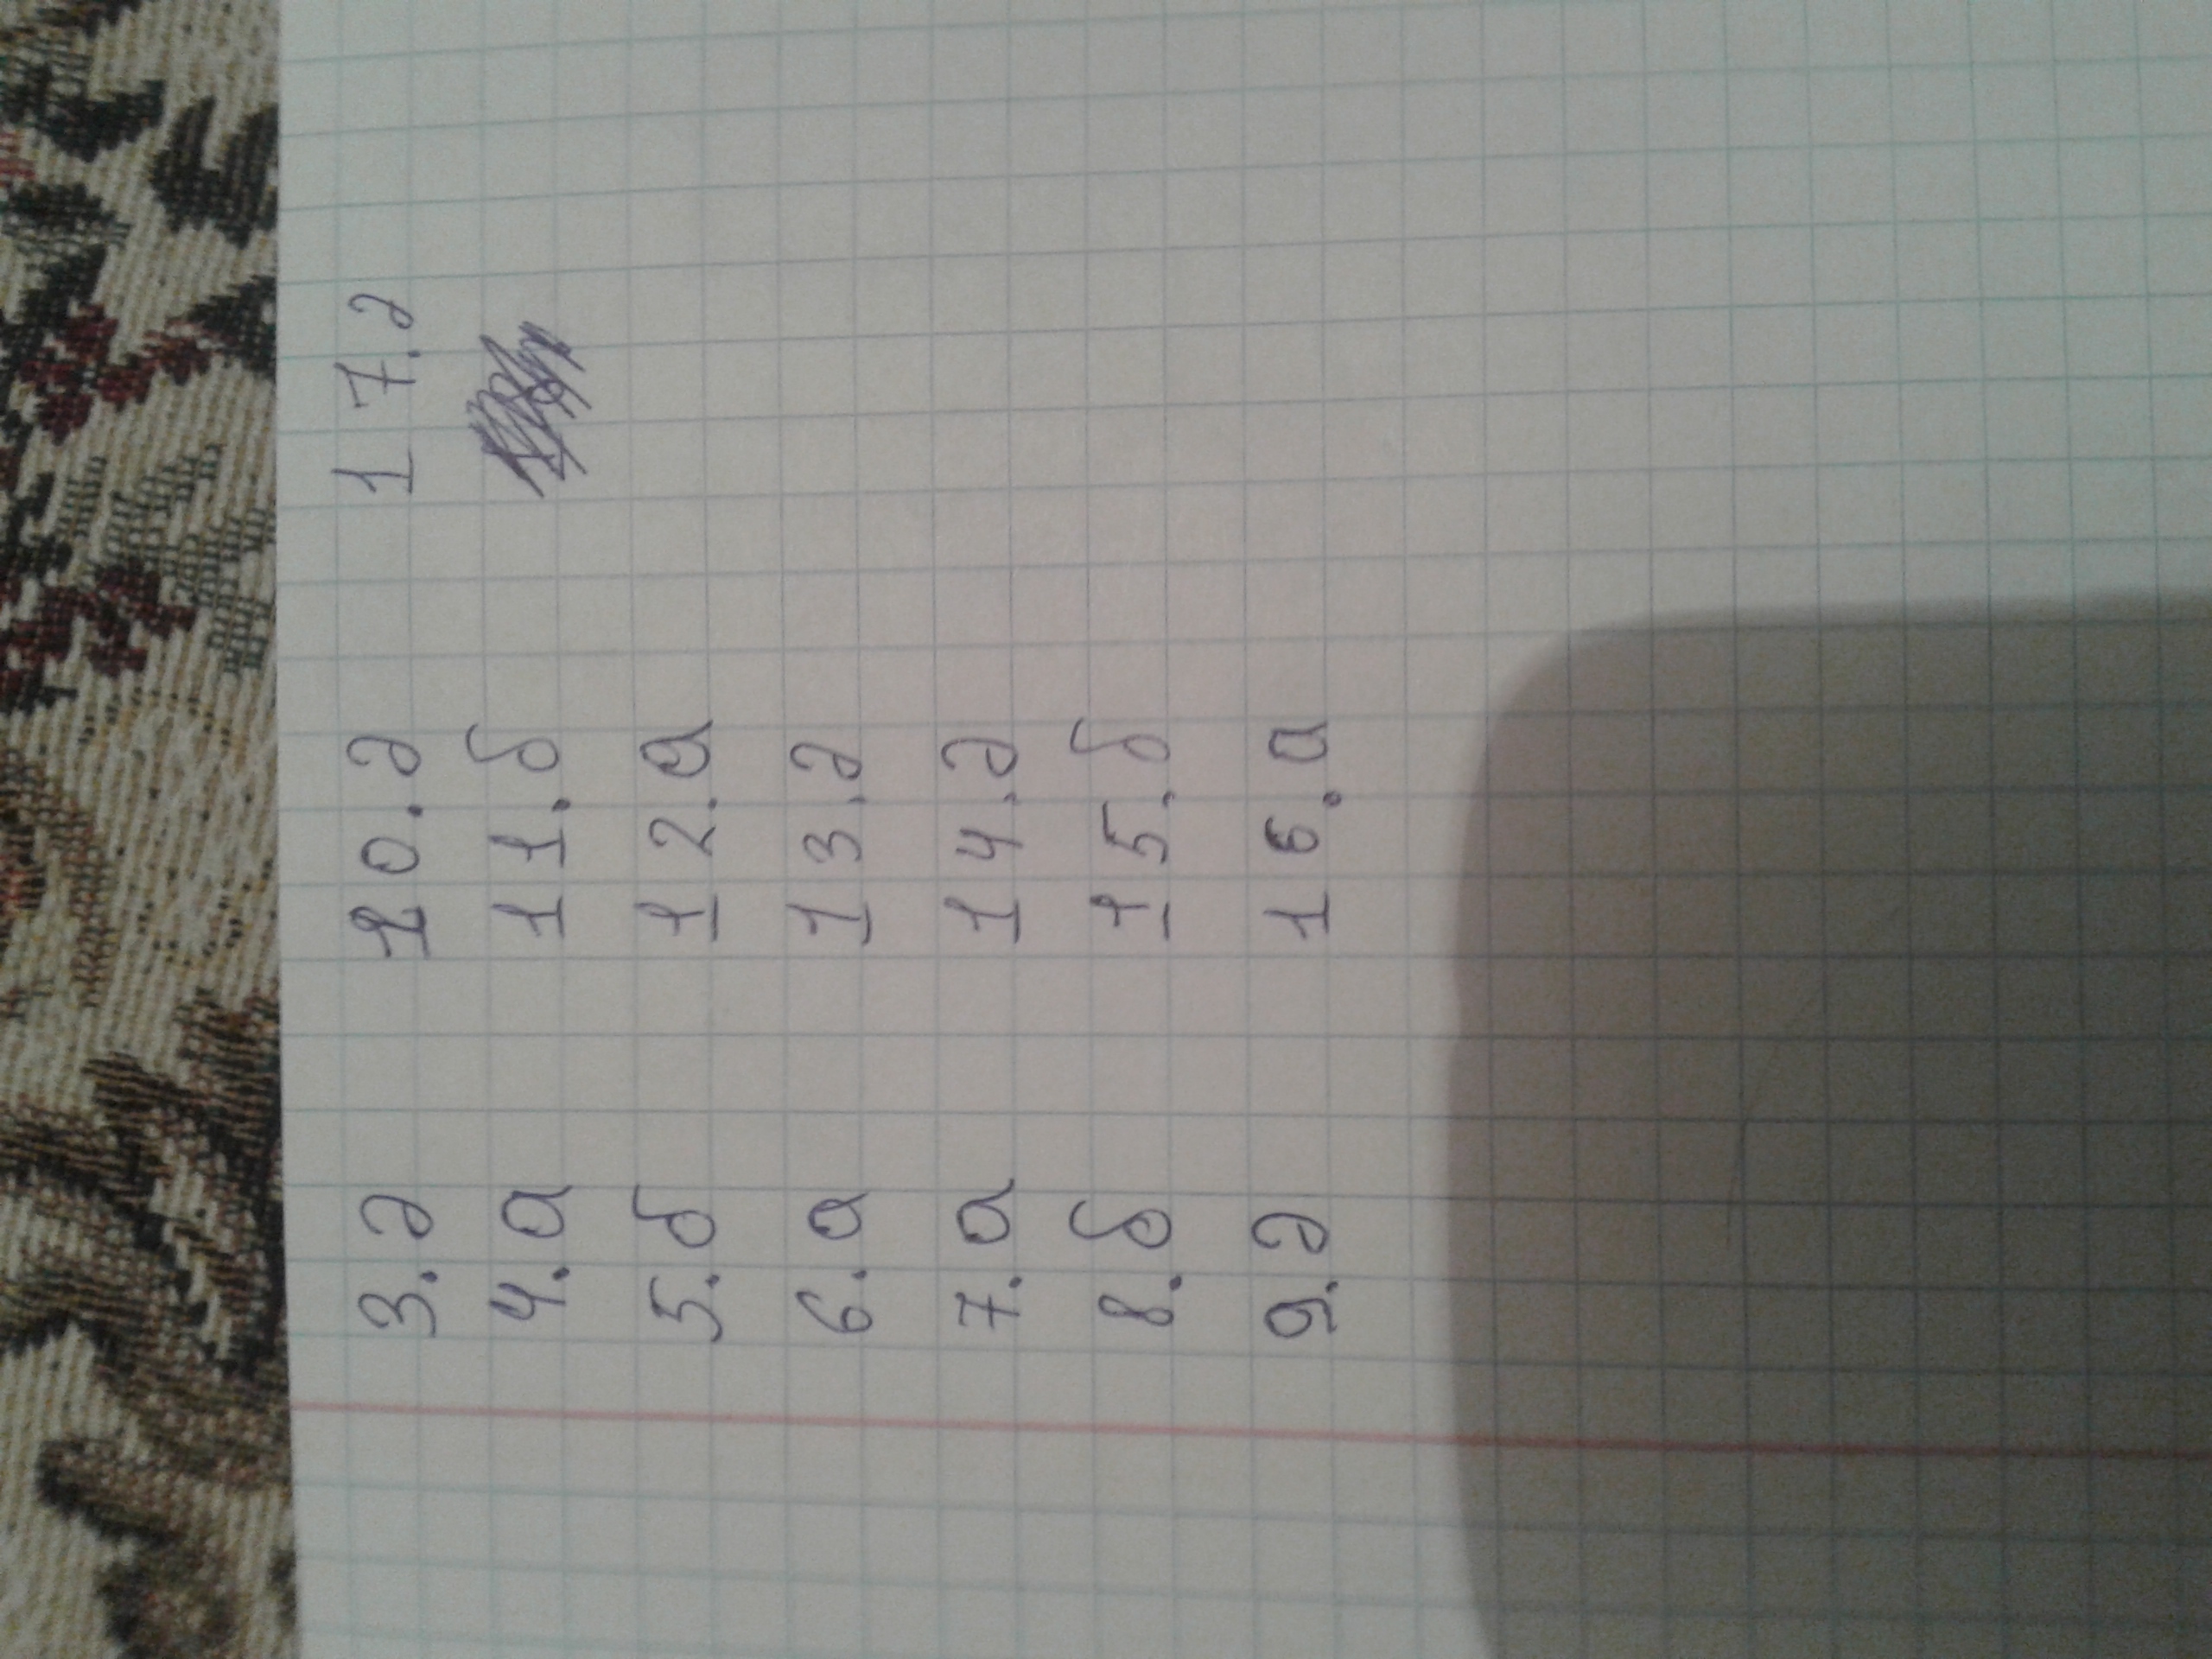 3.д
4.а
5.б
6.а
7.а
8.б
9.д
10.д
11.б
12.а
13.д
14.д
15.б
16.а
17.д